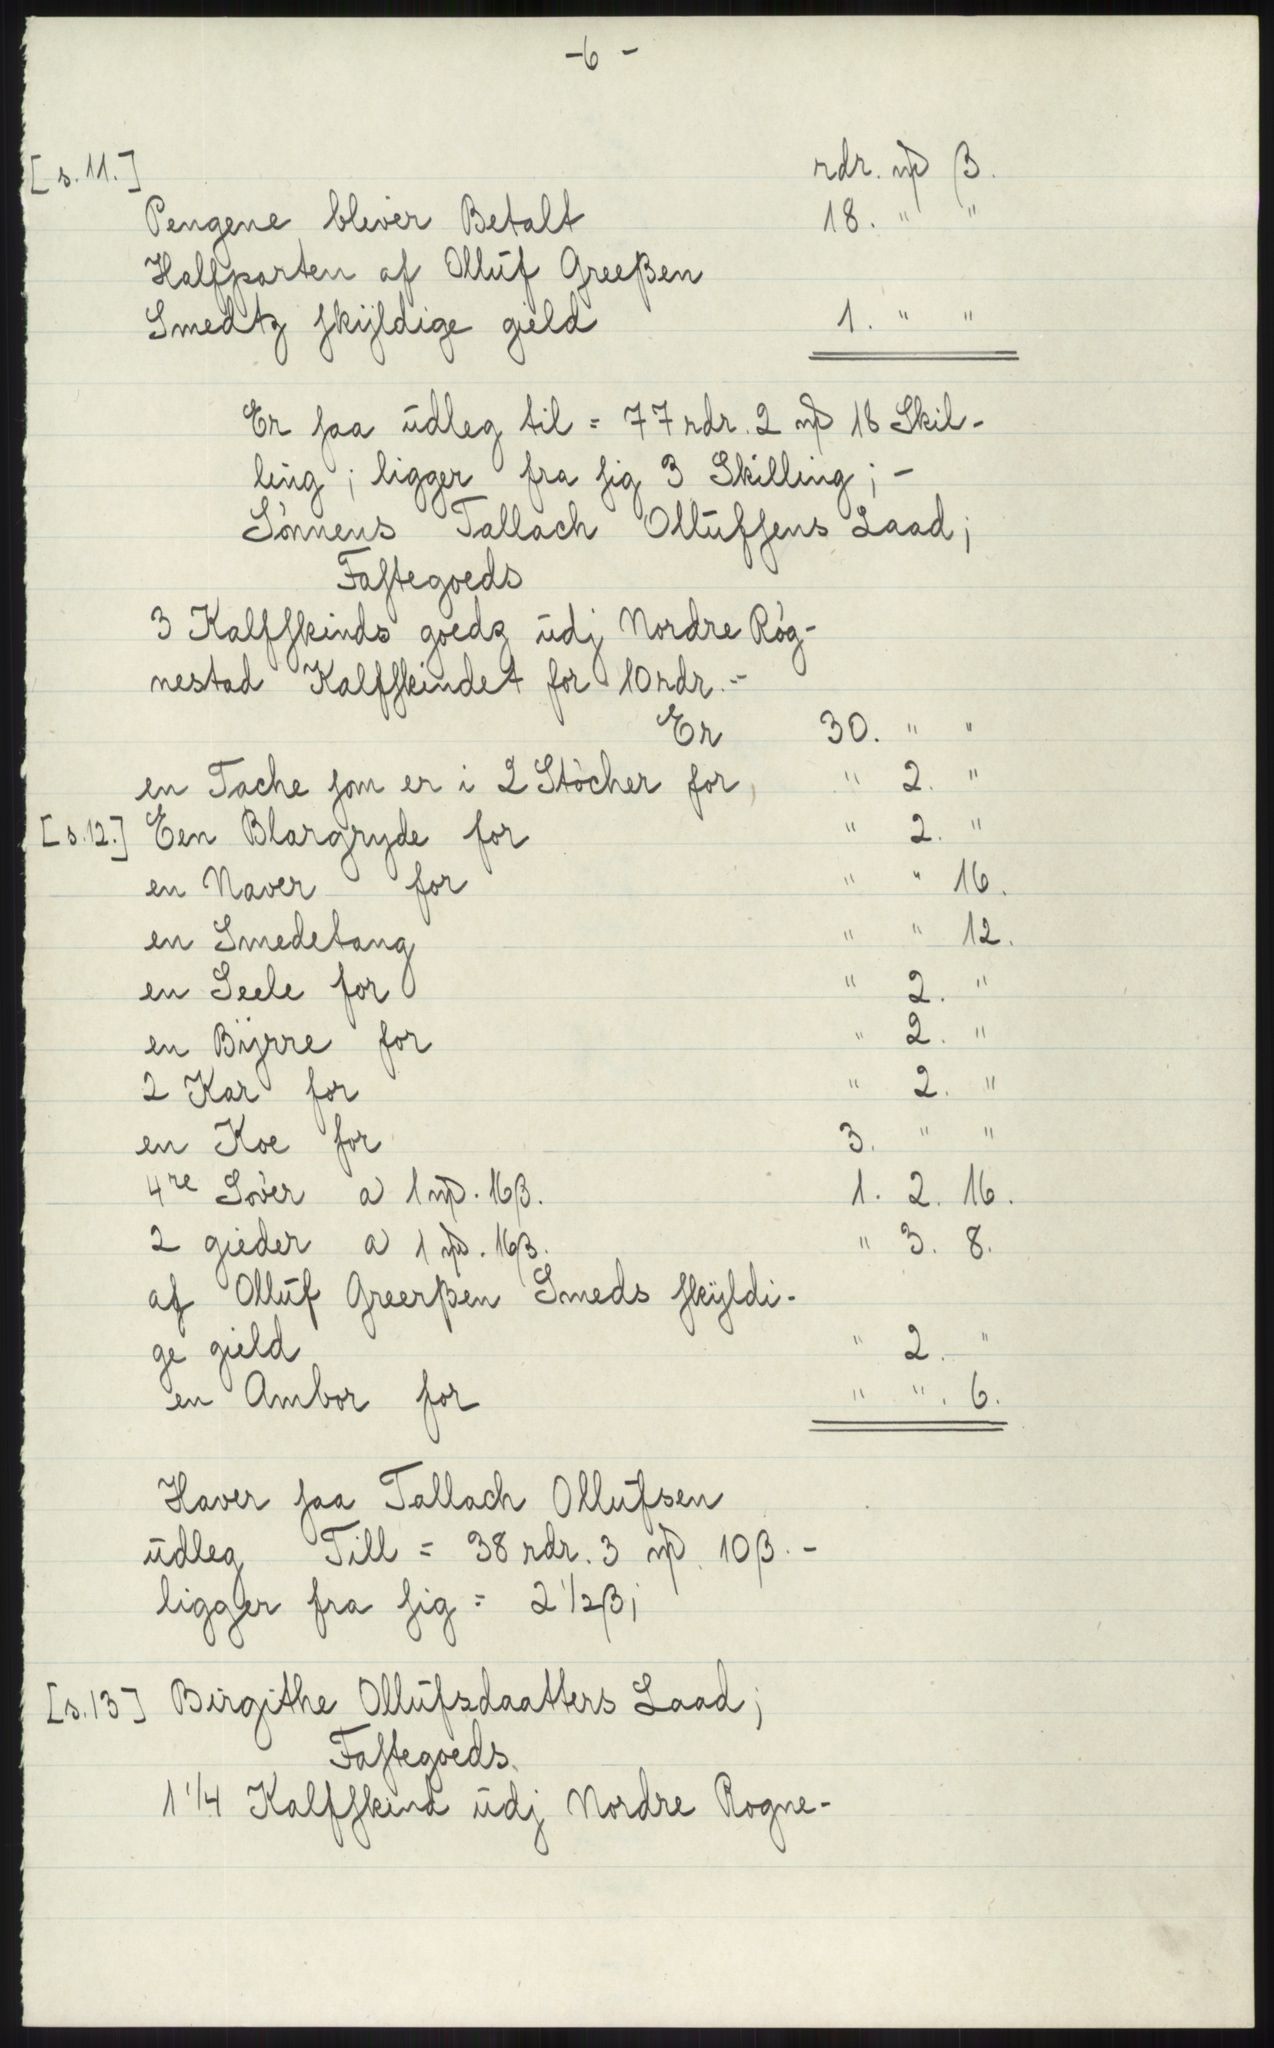 -6-
[s.11.] rdr. m̶ ß.
Pengene bliver Betalt 18. " "
Halfparten af Olluf Greeßen
Smedtz skÿldige gield 1. " "
Er saa udleg til = 77 rdr. 2 m̶ 18 Skil-
ling; ligger fra sig 3 Skilling; -
Sönnens Tallach Ollufsens Laad;
Fastegoeds
3 Kalfskinds goedz udj Nordre Røg-
nestad Kalfskindet for 10 rdr. -
Er 30. " "
en Tache som er i 2 Stöcher for, " 2. "
[s.12.] Een Blargryde for " 2. "
en Naver for " " 16.
en Smedetang " " 12.
en Seele for " 2. "
en Bÿrre for " 2. "
2 Kar for " 2. "
en Koe for 3. " "
4re Söer a 1 m̶. 16ß. 1. 2. 16.
2 gieder a 1 m̶. 16ß. " 3. 8.
af Olluf Greerßen Smeds skÿldi-
ge gield " 2. "
en Ambor for " ". 6.
Haver saa Tallach Ollufsen
udleg Till = 38 rdr. 3 m̶. 10ß. -
ligger fra sig = 2 1/2ß;
[s.13] Birgithe Ollufsdaatters Laad;
Fastegoeds.
1 1/4 Kalfskind udj Nordre Rogne-